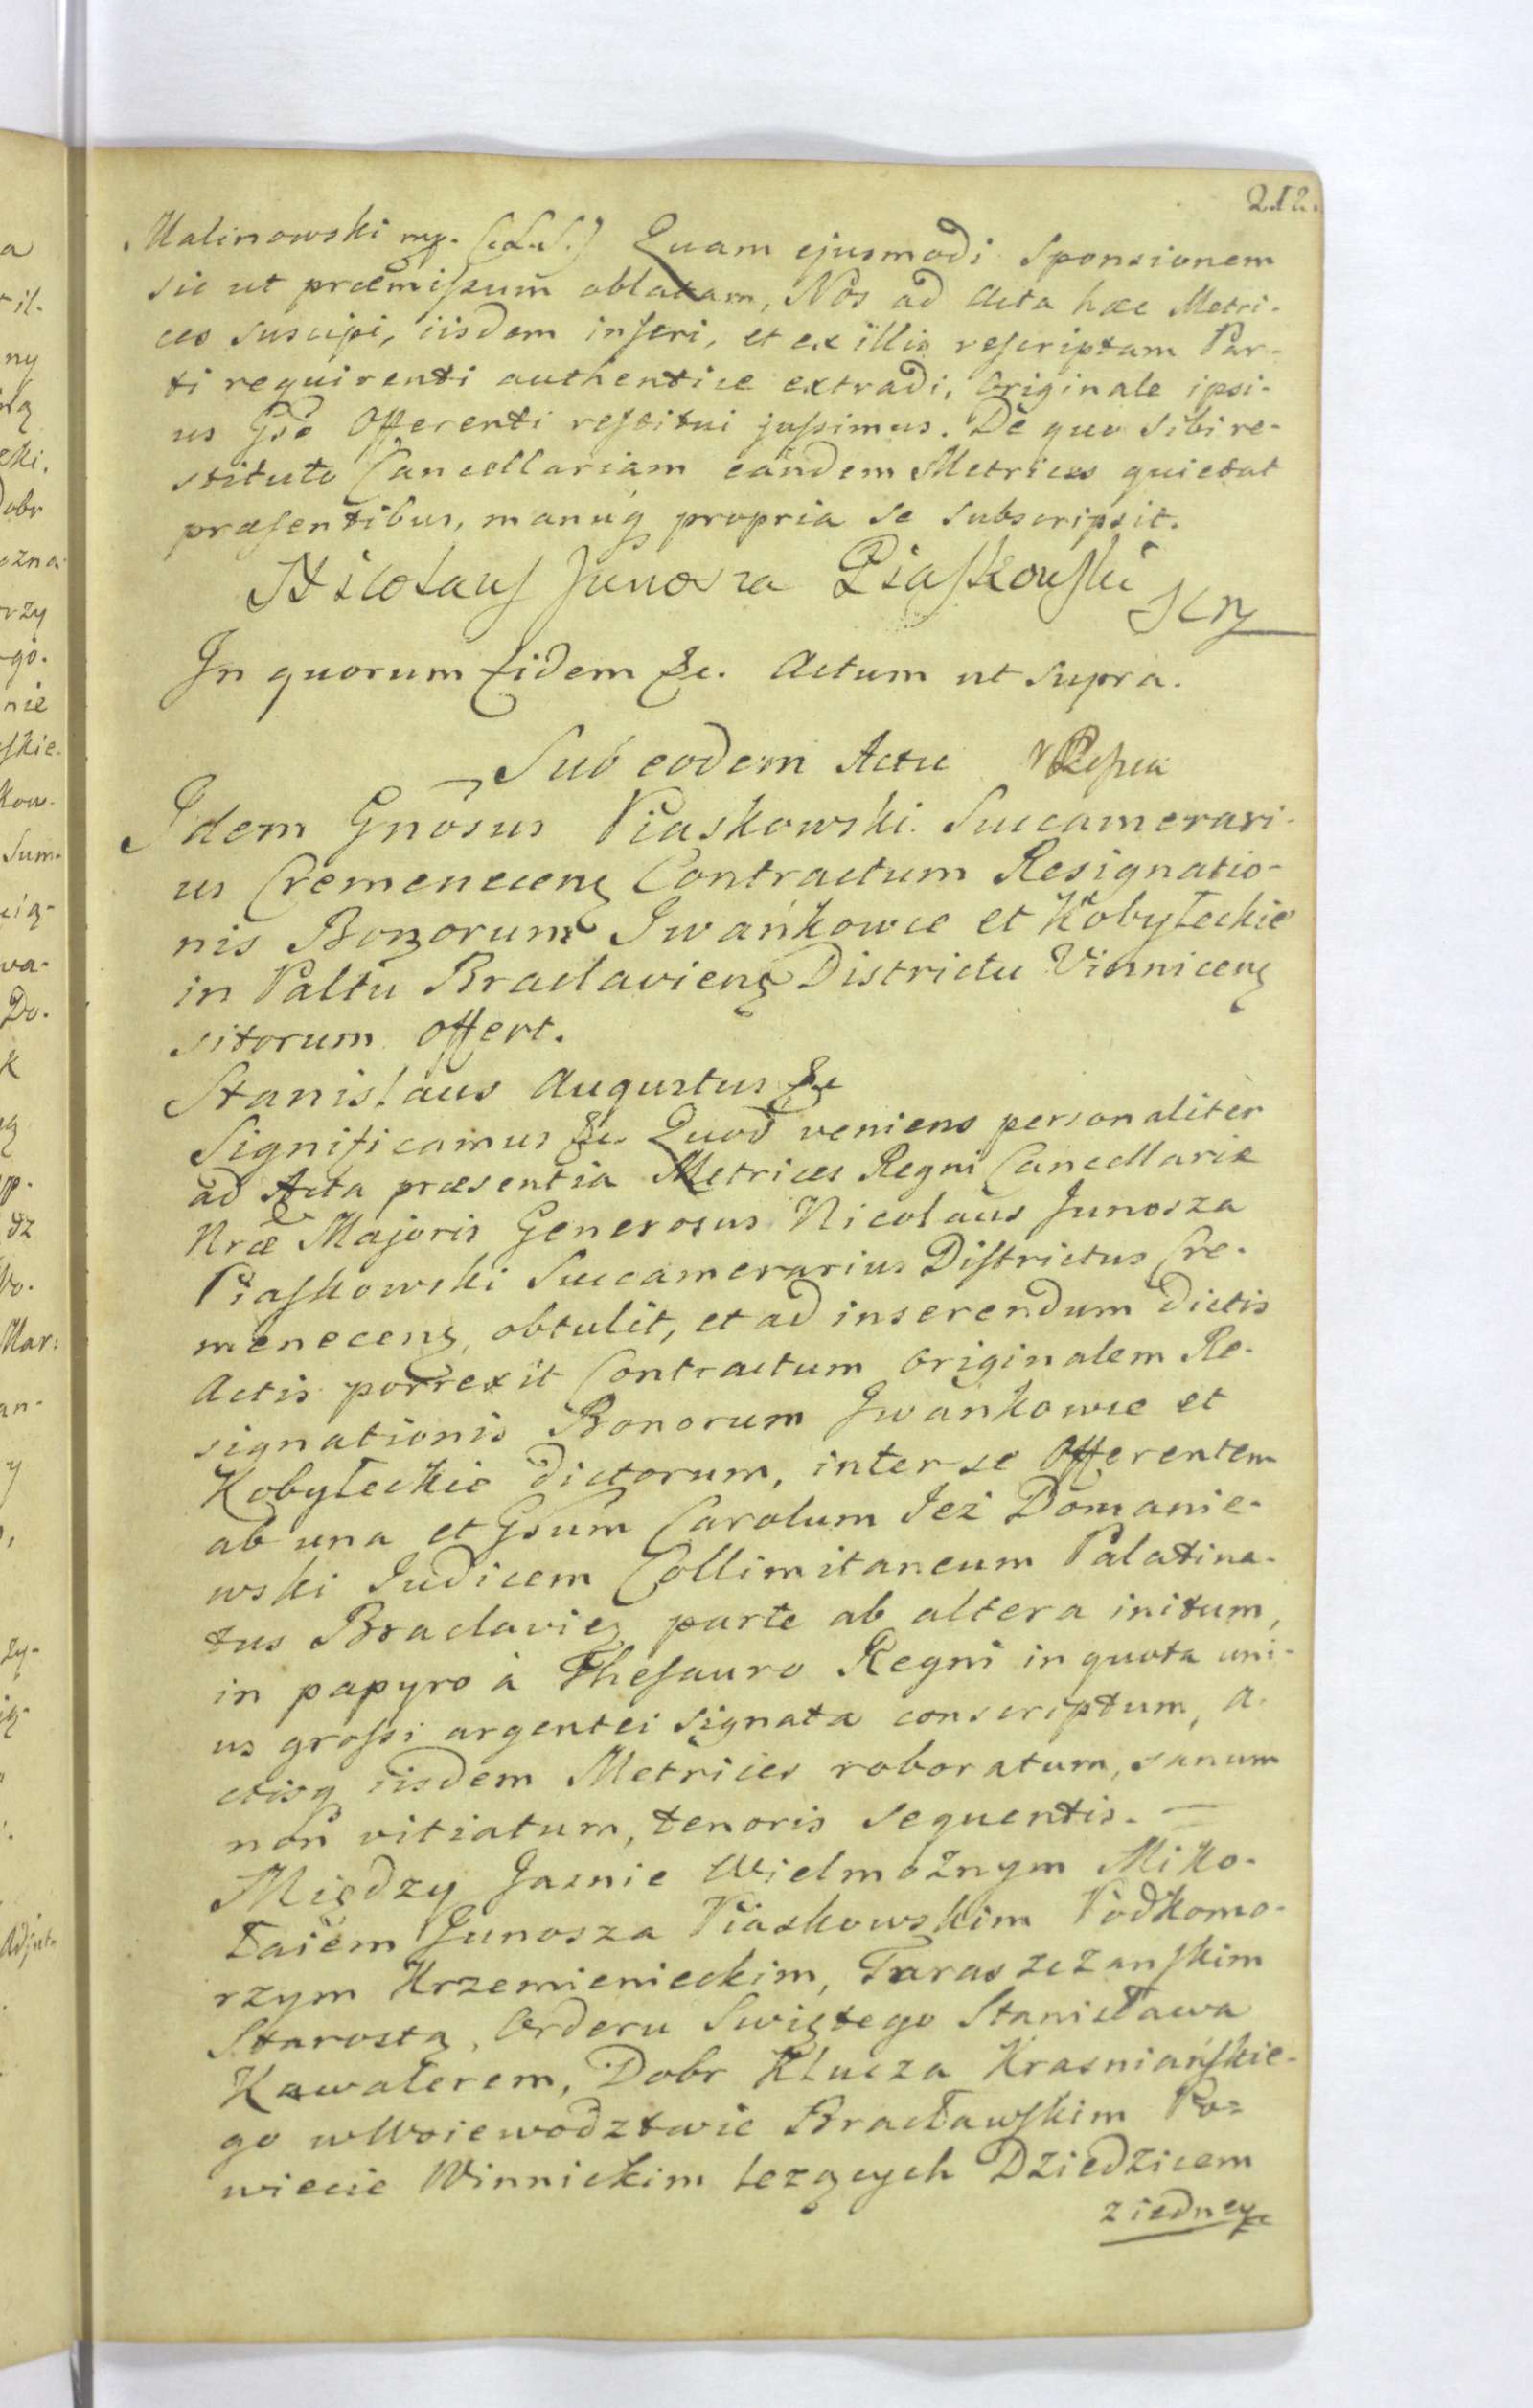 212.
Malinowski mp. (L.S.) Quam ejusmodi Sponsionem
sic ut præmissum oblatam, Nos ad Acta hæc Metri-
ces suscipi, iisdem inseri, et ex illis rescriptam Par-
ti requirenti authentice extradi, Originale ipsi-
us Gso Offerenti restitui jussimus. De quo sibi re-
stituto Cancellariam eandem Metrices quietat
præsentibus, manuq propria se subscripsit.
Nicolaus Junosza Piaskowski
In quorum Fidem &c. Actum ut supra.
Sub eodem Actu
Idem Gnosus Piaskowski Succamerari-
us Cremenecens Contractum Resignatio-
nis Bonorum Iwańkowce et Kobyłeckie
in Paltu Braclaviens Districtu Vinnicens
sitorum offert.
Stanislaus Augustus &c
Significamus &c. Quod veniens personaliter
ad Acta præsentia Metrices Regni Cancellariæ
Nræ Majoris Generosus Nicolaus Junosza
Piaskowski Succamerarius Districtus Cre-
menecens, obtulit, et ad inserendum dictis
Actis porrexit Contractum Originalem Re-
signationis Bonorum Iwańkowce et
Kobyłeckie dictorum, inter se Offerentem
ab una et Gsum Carolum Jeż Domanie-
wski Judicem Collimitaneum Palatina-
tus Braclavien parte ab altera initum,
in papyro à Thesauro Regni in quota uni-
us grossi argentei signata conscriptum, A-
ctisq iisdem Metrices roboratum, sanum
non vitiatum, tenoris sequentis. —
Między Jasnie Wielmożnym Miko-
łaiem Junosza Piaskowskim Podkomo-
rzym Krzemienieckim, Taraszczanskim
Starostą, Orderu Swiętego Stanisława
Kawalerem, Dobr Klucza Krasniańskie-
go w Woiewodztwie Bracławskim Po-
wiecie Winnickim leżących Dziedzicem
z iedney